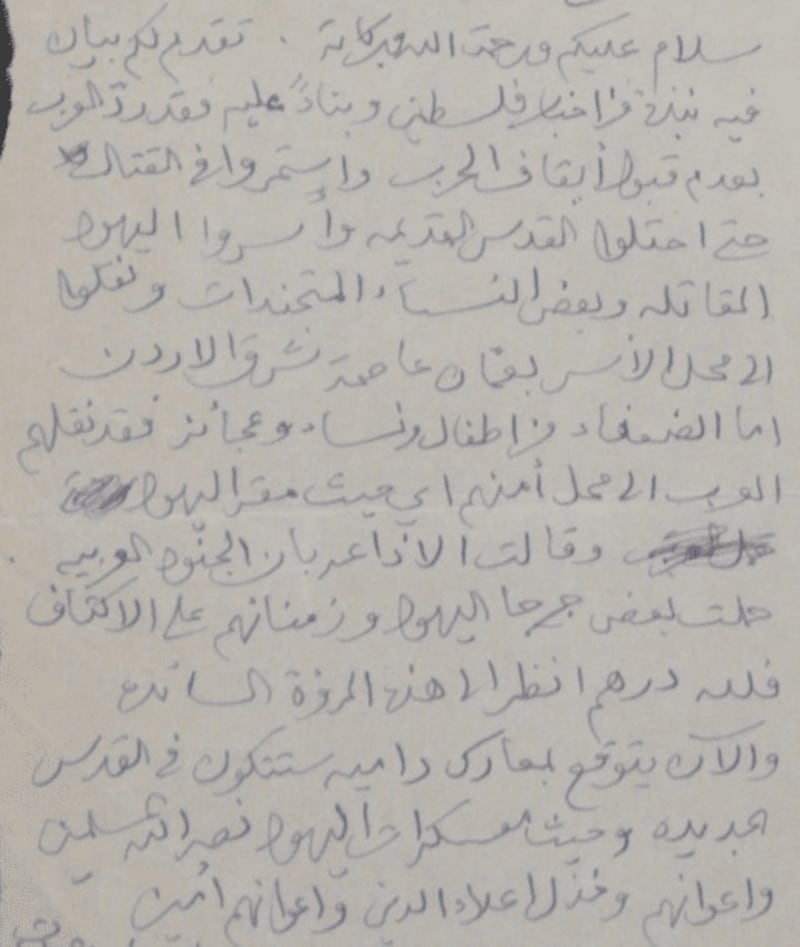 سلام عليكم ورحمة الله وبركاته . نقدم لكم بيان
فيه نبذة من اخبار فلسطين وبناءً عليه فقد ردة العرب
بعدم قبول أيقاف الحرب وإستمروا في القتال
حتى احتلوا القدس القديمه وأسروا اليهود
المقاتله وبعض النساء المتجندات ونقلوا
الى محل الأسر بعمان عاصمة شرق الاردن
اما الضعفاء من اطفال ونساء وعجائز فقد نقلهم
العرب الى محل أمنهم اي حيث مقر اليهود
وقالت الاذاعه بان الجنود العربيه
حملت بعض جرحا اليهود وزمنائهم على الاكتاف
فلله درهم انظر الا هذه المروة السائده
والآن يتوقع بمعارك داميه ستتكون في القدس
الجديده وحيث معسكرات اليهود نصر الله المسلمين
واعوانهم وخذل اعداء الدين واعوانهم أمين